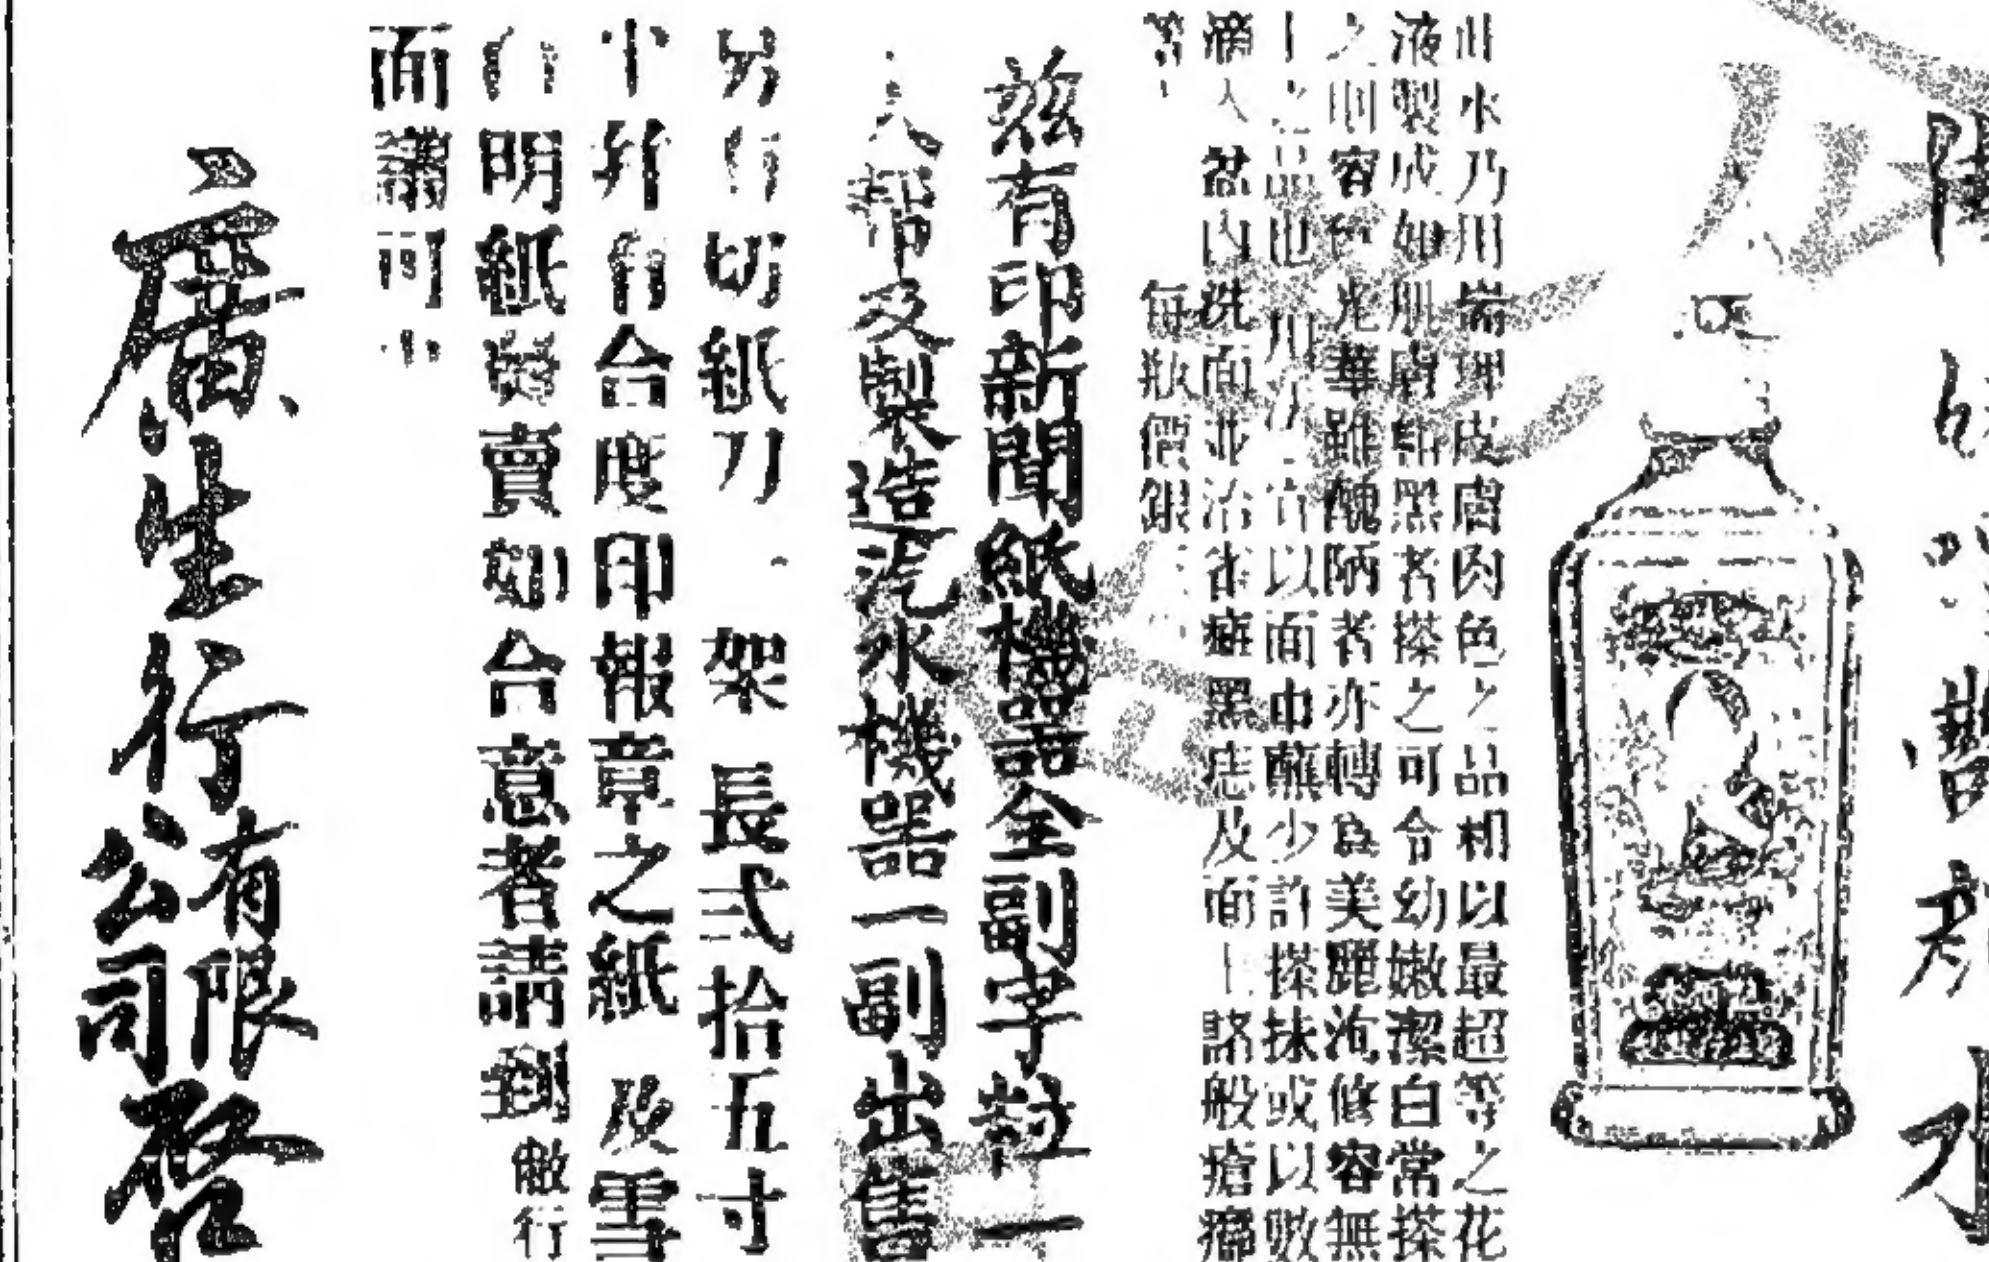 水乃用 皮膚肉色之品相以最超等之花
液製成如肌膚黯黑者搽之可令幼嫩潔白常搽
之則容色光華雖醜陋者亦轉為美麗洵修容無
之品也用 以面巾蘸少許搽抹或以數
滴入盆內洗面並治雀癍黑痣及面上諸般瘡癤
等 每瓶價銀
茲有印新聞紙機器全副字粒一
大幫及製造汽水機器一副出售
另有切紙刀 架長弍拾五寸
合度印報章之紙 及雪
明紙 賣如合意者請到敝行
面議可也
廣生行有限公司啓